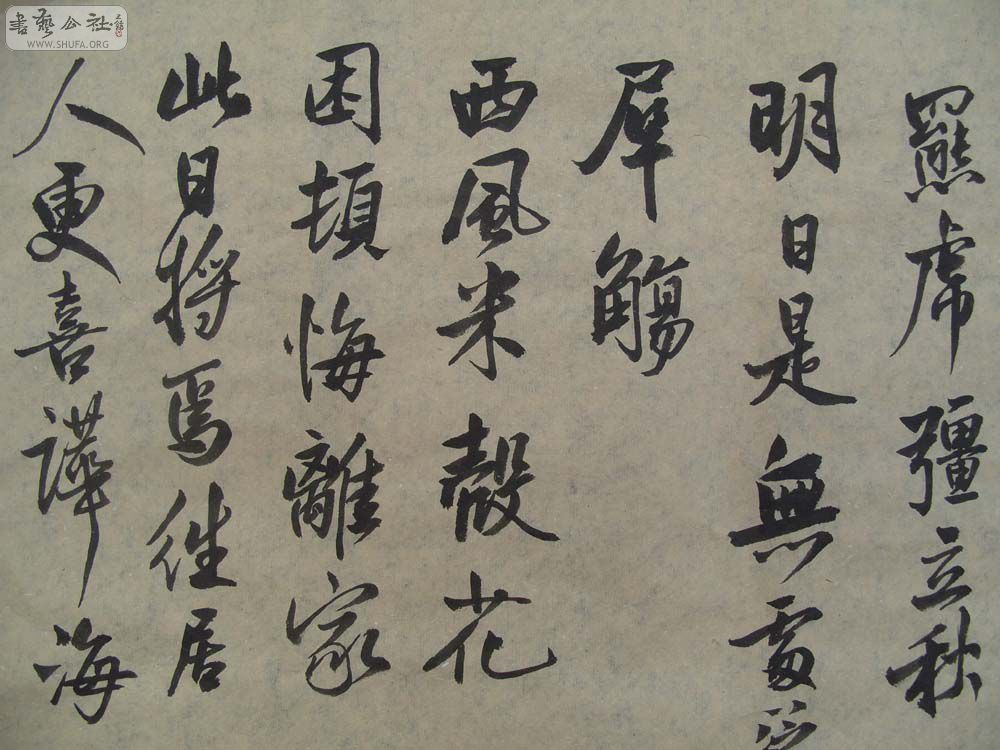 羆虎彊立秋
明日是無處
犀觴
西風米殼花
困頓悔離家
此日將焉往居
人更喜譁海
書藝公社
WWW.SHUFA.ORG